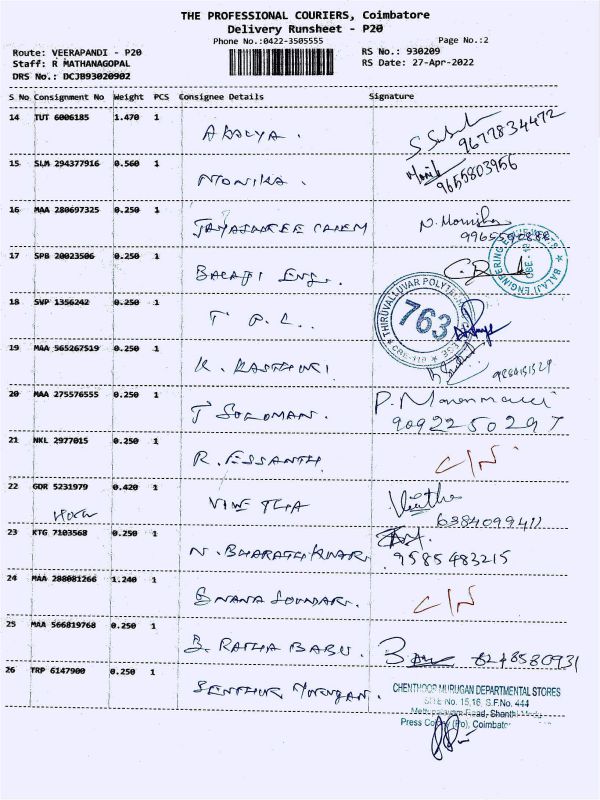 THE PROFESSIONAL COURIERS, Coimbatore
Delivery Runsheet - P20
Phone No.:0422-3505555
Page No.:2
Route: VEERAPANDI - P20
RS No.: 930209
Staff: R MATHANAGOPAL
RS Date: 27-Apr-2022
DRS No.: DCJB93020902
S No Consignment No Weight PCS Consignee Details Signature
14 TUT 6006185 1.470 1
9677834472
15 SLM 294377916 0.560 1 MONIKA.
9655803956
16 MAA 280697325 0.250 1
17 SPB 20023506 0.250 1 BALAJI ENG.
BALAJI ENGINEERING
18 SWP 1356242 0.250 1
THIRUVALLUVAR POLYTECHNIC
763
19 MAA 565267519 0.250 1 K. KASTHURI
20 MAA 275576555 0.250 1 T SOLOMAN.
9092250297
21 NKL 2977015 0.250 1 R. ESSANTH C/N
22 GDR 5231979 0.420 1
6384099411
23 KTG 7103568 0.250 1 N. BHARATHKUMAR
9585483215
24 MAA 288081266 1.240 1 C/N
25 MAA 566819768 0.250 1 BABU.
26 TRP 6147900 0.250 1 SENTHUR MURUGAN.
CHENTHOOR MURUGAN DEPARTMENTAL STORES
SITE No. 15,16, S.F.No. 444
Road, Shanthi
Press Colony (Po), Coimbatore